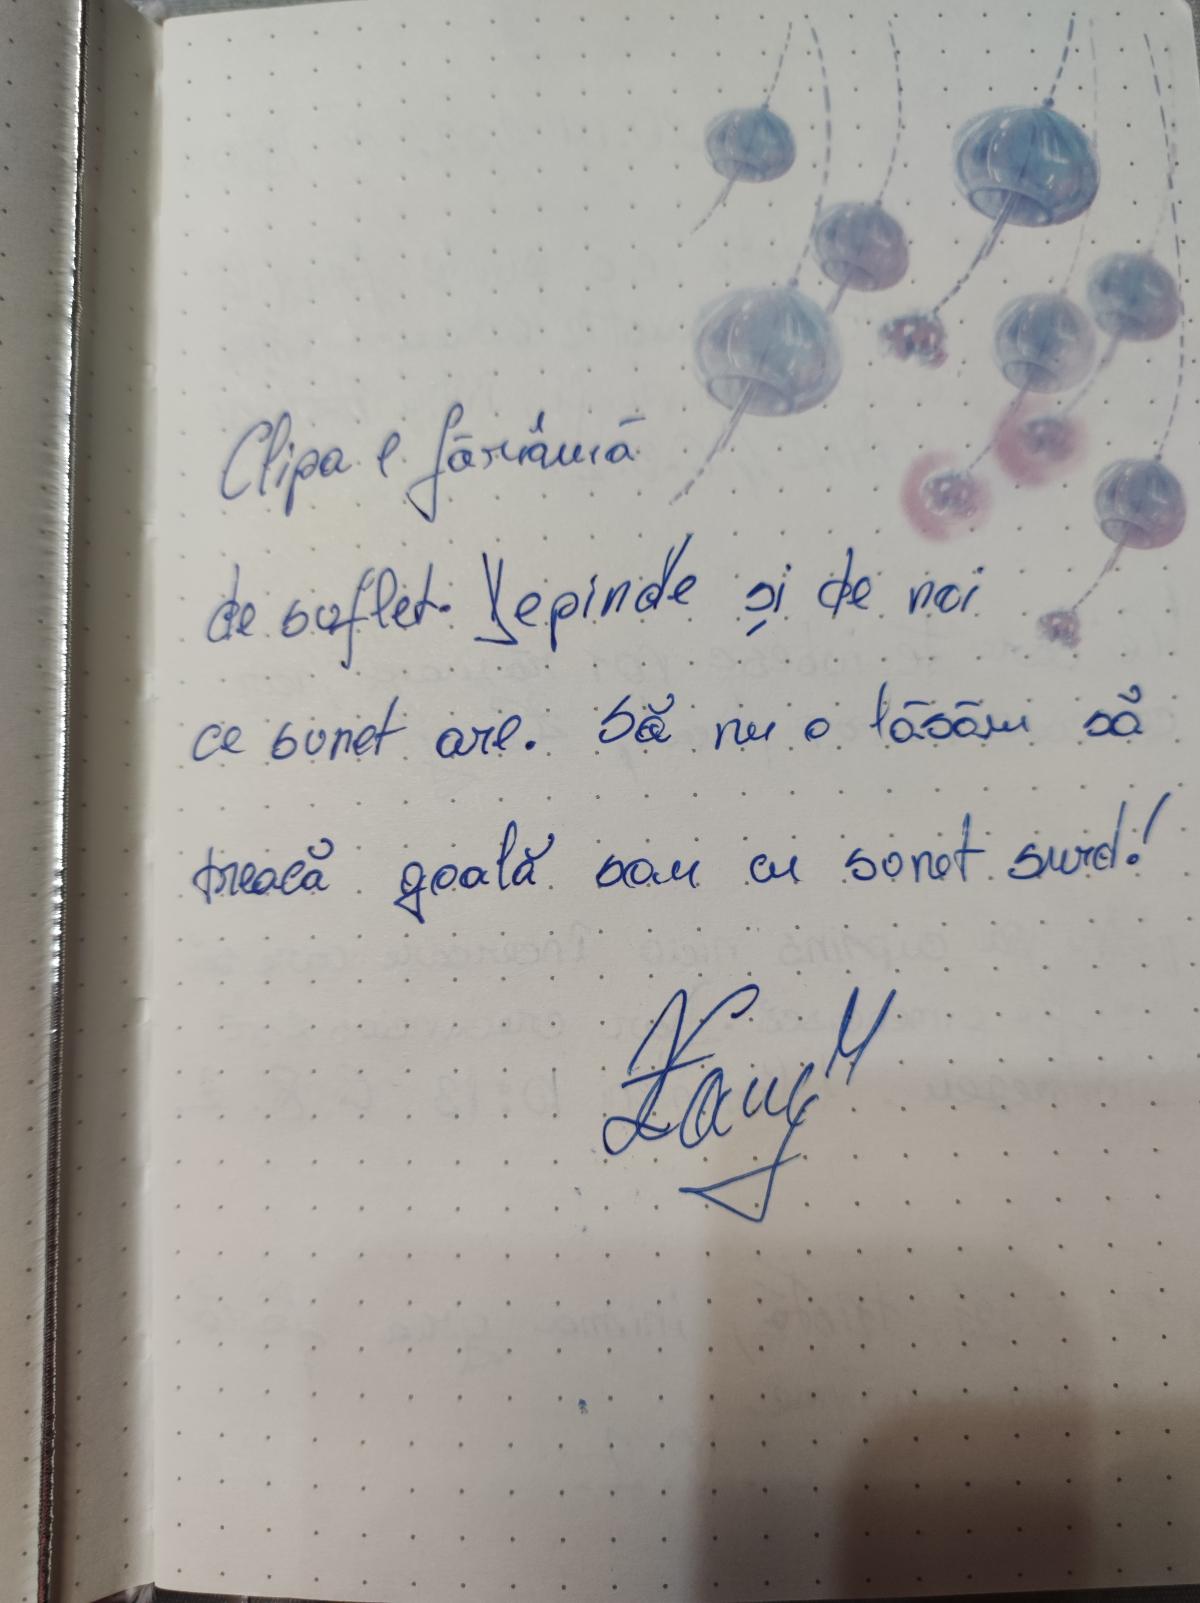 Clipa e fărâmă
de suflet. Depinde și de noi
ce sunet are. Să nu o lăsăm să
treacă goală sau cu sunet surd!